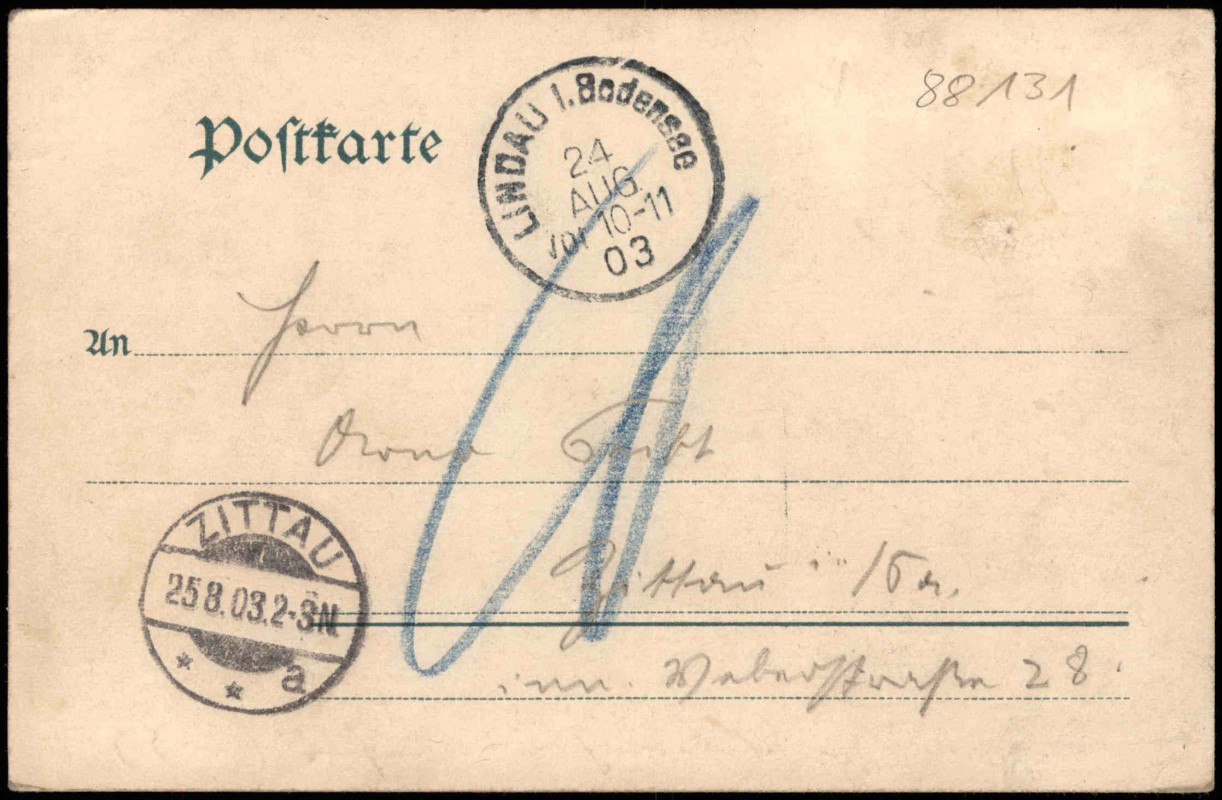 88131
Postkarte
LINDAU i. Bodensee
24
AUG.
Vor 10-11
03
An Herrn
Zittau i/Sa.
ZITTAU
25 8.03.2-3N.
* * a
inn. Weberstraße 28.